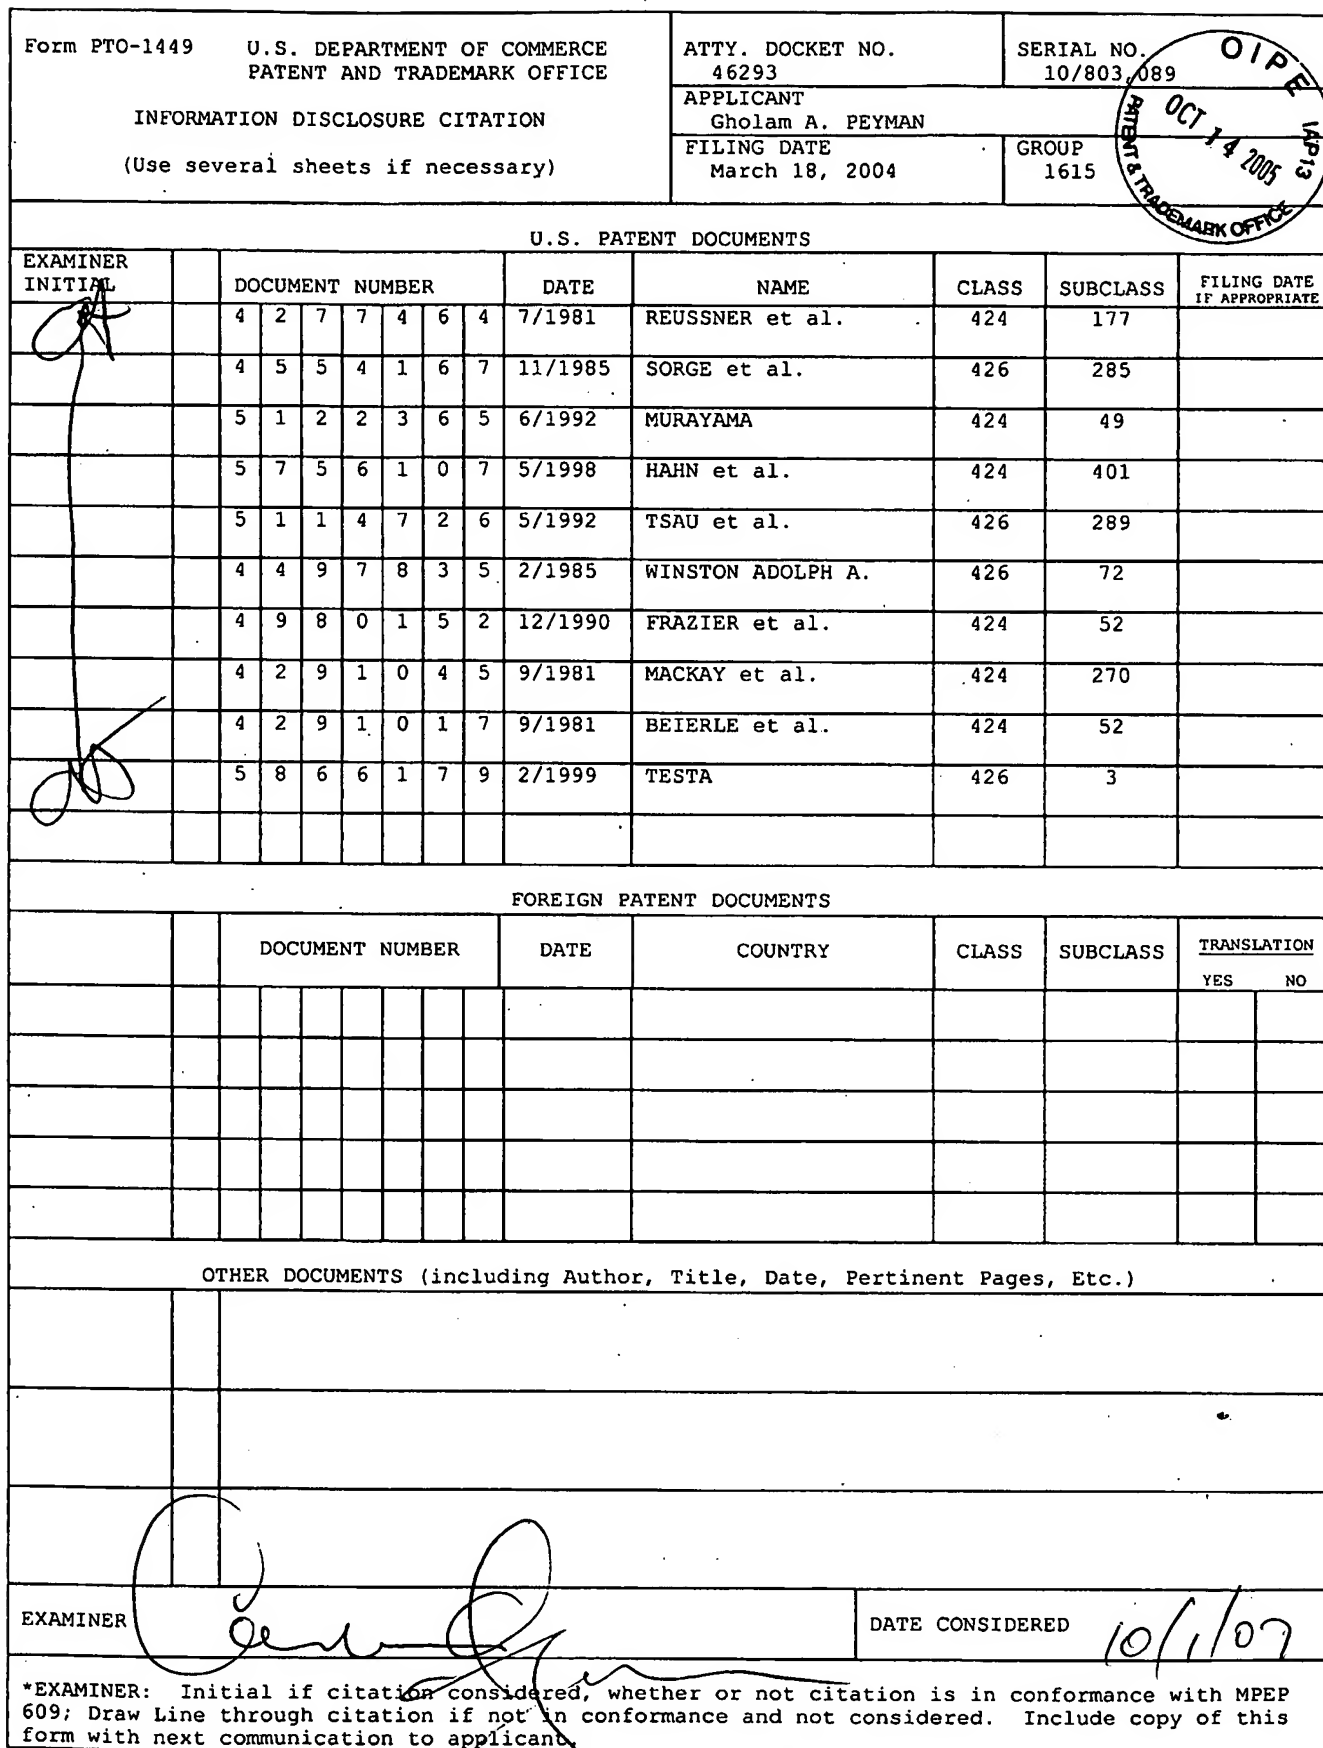 Form PTO-1449 U.S. DEPARTMENT OF COMMERCE
PATENT AND TRADEMARK OFFICE
INFORMATION DISCLOSURE CITATION
(Use several sheets if necessary)
ATTY. DOCKET NO.
46293
SERIAL NO.
10/803,089
APPLICANT
Gholam A. PEYMAN
FILING DATE
March 18, 2004
GROUP
1615
OIPE IAP13
OCT 14 2005
PATENT & TRADEMARK OFFICE
U.S. PATENT DOCUMENTS
EXAMINER INITIAL DOCUMENT NUMBER DATE NAME CLASS SUBCLASS FILING DATE IF APPROPRIATE
4 2 7 7 4 6 4 7/1981 REUSSNER et al. 424 177
4 5 5 4 1 6 7 11/1985 SORGE et al. 426 285
5 1 2 2 3 6 5 6/1992 MURAYAMA 424 49
5 7 5 6 1 0 7 5/1998 HAHN et al. 424 401
5 1 1 4 7 2 6 5/1992 TSAU et al. 426 289
4 4 9 7 8 3 5 2/1985 WINSTON ADOLPH A. 426 72
4 9 8 0 1 5 2 12/1990 FRAZIER et al. 424 52
4 2 9 1 0 4 5 9/1981 MACKAY et al. 424 270
4 2 9 1 0 1 7 9/1981 BEIERLE et al. 424 52
5 8 6 6 1 7 9 2/1999 TESTA 426 3
FOREIGN PATENT DOCUMENTS
DOCUMENT NUMBER DATE COUNTRY CLASS SUBCLASS TRANSLATION
YES NO
OTHER DOCUMENTS (including Author, Title, Date, Pertinent Pages, Etc.)
EXAMINER
DATE CONSIDERED 10/1/07
*EXAMINER: Initial if citation considered, whether or not citation is in conformance with MPEP
609; Draw Line through citation if not in conformance and not considered. Include copy of this
form with next communication to applicant.